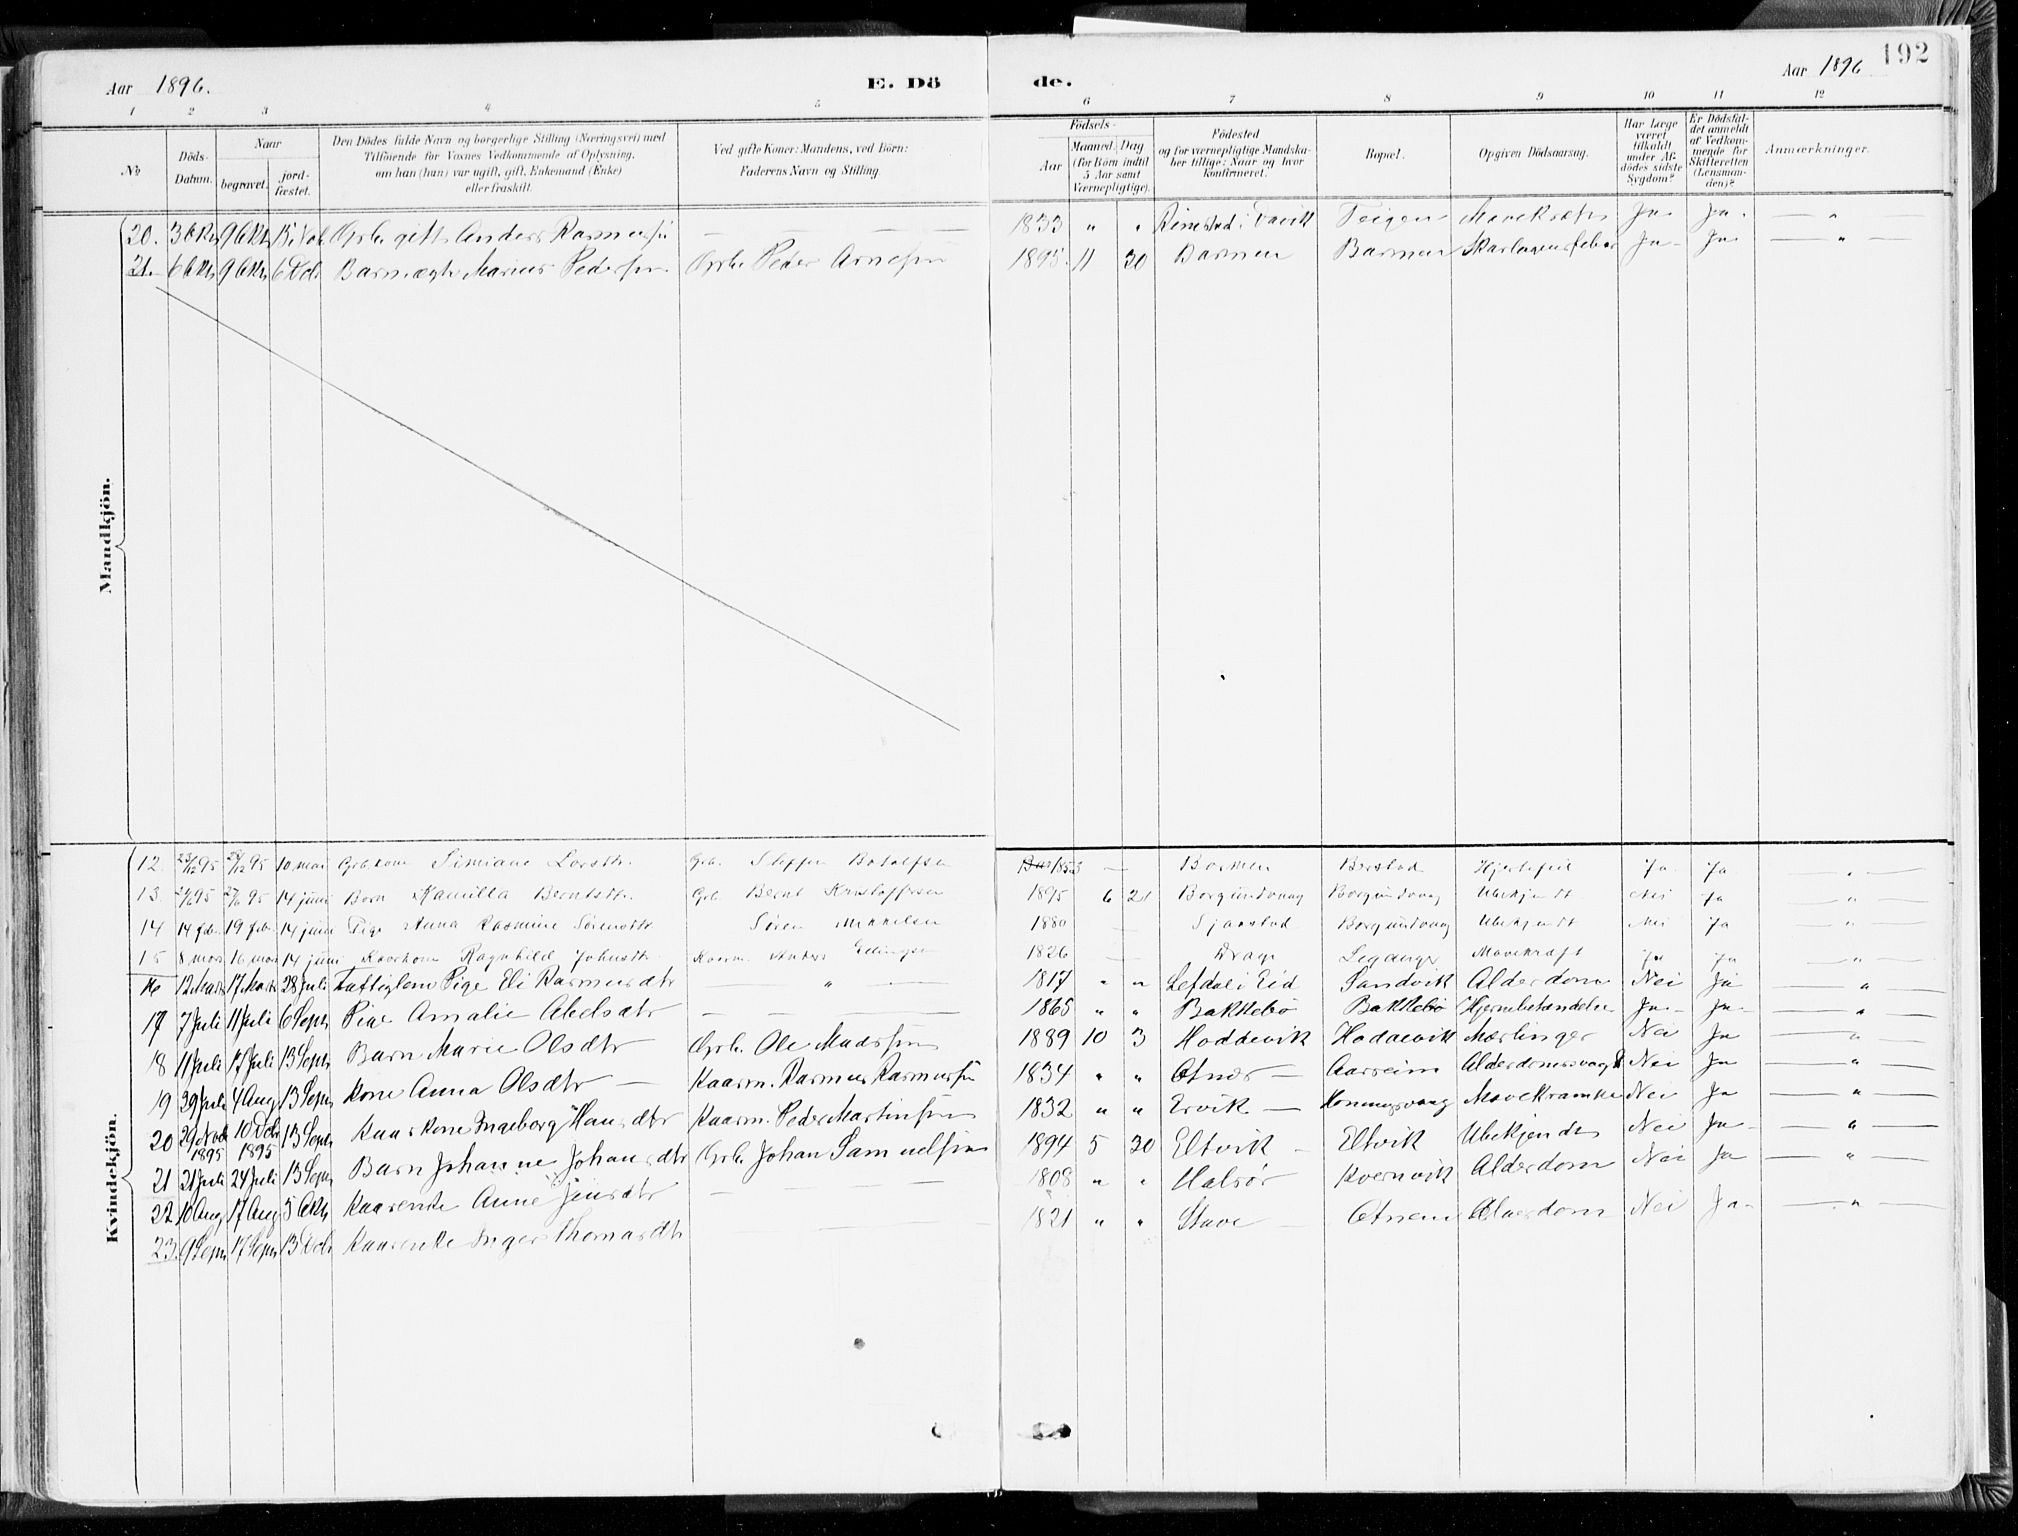 Aar 1896. E. Dö de. Aar 1896 192
1 2 3 4 5 6 7 8 9 10 11 12
№
Döds-
Datum.
Naar
begravet.
jord-
fæstet.
Den Dödes fulde Navn og borgerlige Stilling (Næringsvei) med
Tilföiende for Voxnes Vedkommende af Oplysning,
om han (hun) var ugift, gift, Enkemand (Enke)
eller fraskilt.
Ved gifte Koner: Mandens, ved Börn:
Faderens Navn og Stilling.
Födsels-
Aar
Maaned. Dag
(for Börn indtil
5 Aar samt
Værnepligtige).
Födested
og for værnepligtige Mandska-
ber tillige: Naar og hvor
konfirmeret.
Bopæl.
Opgiven Dödsaarsag.
Har Læge
været
tilkaldt
under Af-
dödes sidste
Sygdom?
Er Dödsfal-
det anmeldt
af Vedkom-
mende for
Skifteretten
(Lensman-
den)?
Anmærkninger.
Mandkjön.
20. 3 Okt 9 Okt 15 Nov Grb. gift Anders Rasmussen — — — 1833 " " Rimstad i Davik Teigen Mavekræft Ja Ja — " —
21. 6 Okt 9 Okt 6 Dcb Barn Marius Pedersen Grb. Peder Arnesen 1895 11 30 Barmen Barmen Skarlagensfeber Ja Ja — " —
Kvindekjön.
12. 23/12 95 /12 95 10 mai Grb.kone Simiane Larsdtr. Grb. Steffen Botolfsen 1853 — Barmen Berstad Hjertefeil Ja Ja — " —
13. 95 27/6 95 14 juni Barn Kamilla Berntsdtr. Grb. Bernt Kristoffersen 1895 6 21 Borgundvaag Borgundvaag Ubekjendt Nei Ja — " —
14 14 feb. 19 feb. 14 juni Pige Anna Rasmine Sörensdtr Sören Mikkelsen 1880 — Sjaastad Borgundvaag Ubekjendt Nei Ja — " —
15 8 mars 16 mars 14 juni Kaarkone Ragnhild Johnsdtr Kaarm. Anders 1826 — Drage Leganger Mavekræft Ja Ja — " —
16 12 Marts 17 Marts 28 Juli Fattiglem Pige Eli Rasmusdtr — " — 1817 " " Lefdal i Eid Sandvik Alderdom Nei Ja — " —
17 7 Juli 11 Juli 6 Sept Pige Amalie Abelsdtr — — — 1865 " " Bakkebö Bakkebö Hjernebetændelse Ja Ja — " —
18 11 Juli 17 Juli 13 Sept Barn Marie Olsdtr Grb. Ole Madssen 1889 10 3 Hoddevik Hoddevik Mæslinger Nei Ja — " —
19 Juli 4 Aug 13 Sept Kone Anna Olsdtr — Kaarm. Rasmus Rasmussen 1834 " " Otnes — Aarseim Alderdomssvagh. Nei Ja — " —
20 29 Nov 1895 10 Dcb 1895 13 Sept Kaarkone Ingeborg Hansdtr Kaarm. Peder Martinsen 1832 " " Ervik — Honningsvaag Mavekrampe Nei Ja — " —
21 21 Juli 24 Juli 13 Sept Barn Johanne Johansdtr Grb. Johan Samuelsen 1894 5 30 Eltvik — Eltvik Ubekjendt Nei Ja — " —
22 10 Aug 17 Aug 5 Okt Kaarenke Anne Jensdtr — — 1808 " " Halsör Kvernvik Alderdom Nei Ja — " —
23. 9 Sept 17 Sept 13 Dcb Kaarenke Inger Thomasdtr — — 1821 " " Stave — Otnem Alderdom Nei Ja — " —